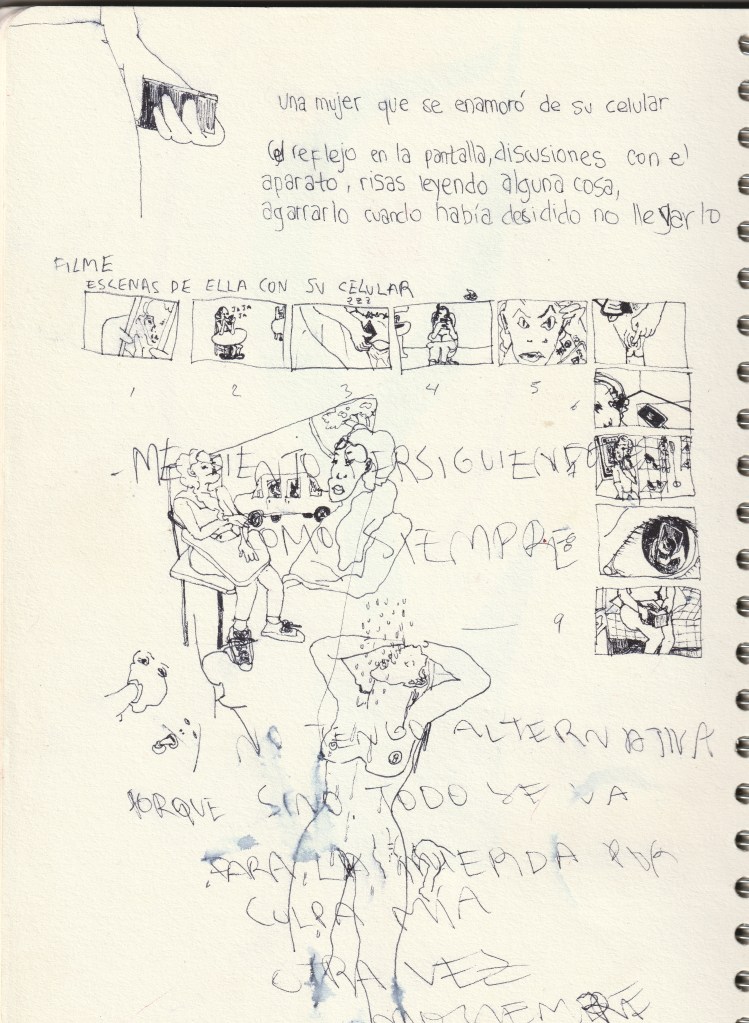 una mujer que se enamoró de su celular
(el reflejo en la pantalla, discusiones con el
aparato, risas leyendo alguna cosa,
agarrarlo cuando había desidido no llevarlo
FILME
ESCENAS DE ELLA CON SU CELULAR
zzz
JA JA
JA
1 2 3 4 5
6
- ME SIENTO
COMO SIEMPRE
9
NO TENGO ALTERNATIVA
PORQUE SINO TODO SE VA
PARA LA MIERDA POR
CULPA MÍA
OTRA VEZ